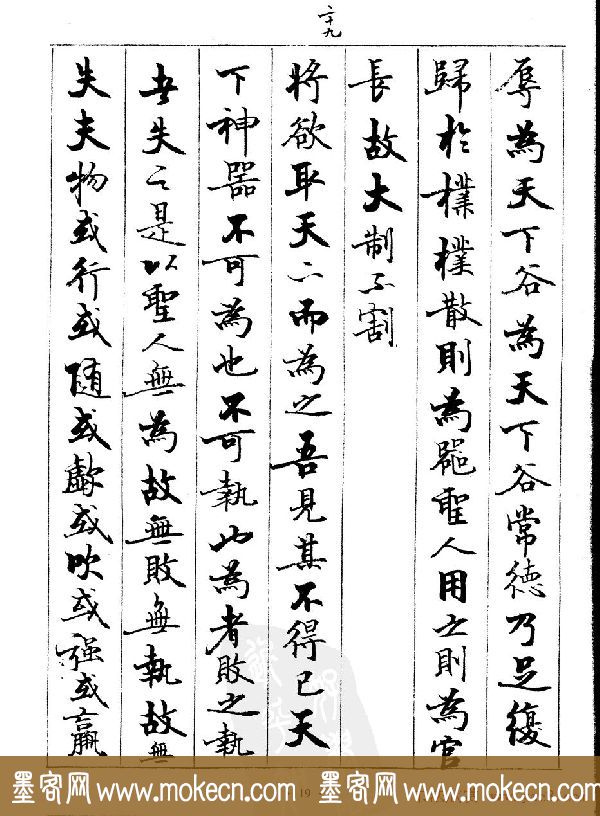 二十九
辱為天下谷為天下谷常德乃足復
歸於樸樸散則為器聖人用之則為官
長故大制不割
將欲取天下而為之吾見其不得已天
下神器不可為也不可執也為者敗之執
者失之是以聖人無為故無敗無執故無
失夫物或行或隨或歔或吹或强或羸
墨客网 www.mokecn.com 墨客网 www.mokecn.com
19